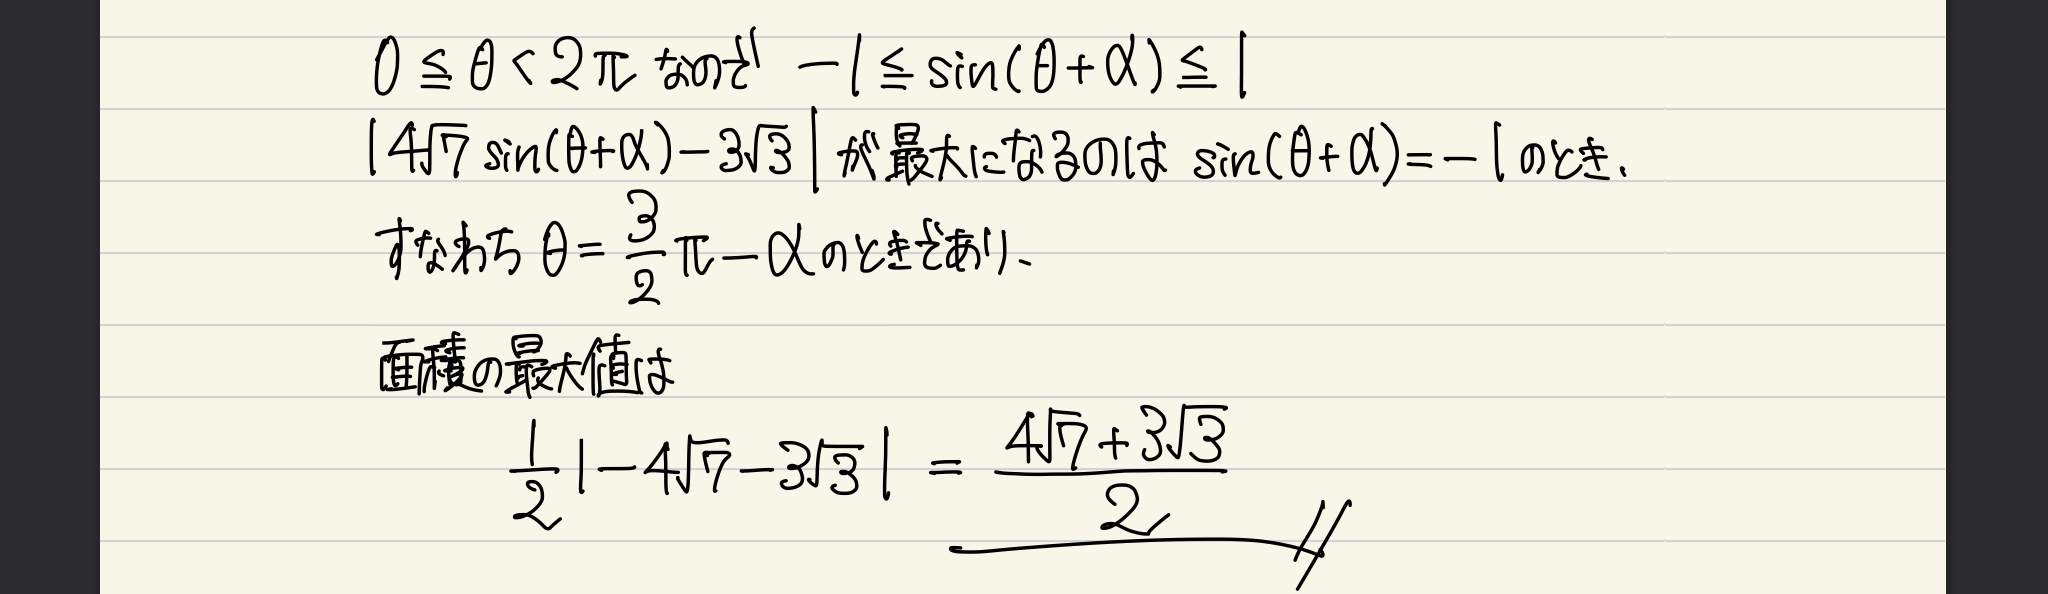 0 ≦ θ < 2π なので -1 ≦ sin(θ+α) ≦ 1
|4√7 sin(θ+α) - 3√3| が最大になるのは sin(θ+α) = -1 のとき、
すなわち θ = 3/2 π - α のときであり、
面積の最大値は
1/2 |-4√7 - 3√3| = (4√7 + 3√3)/2 //